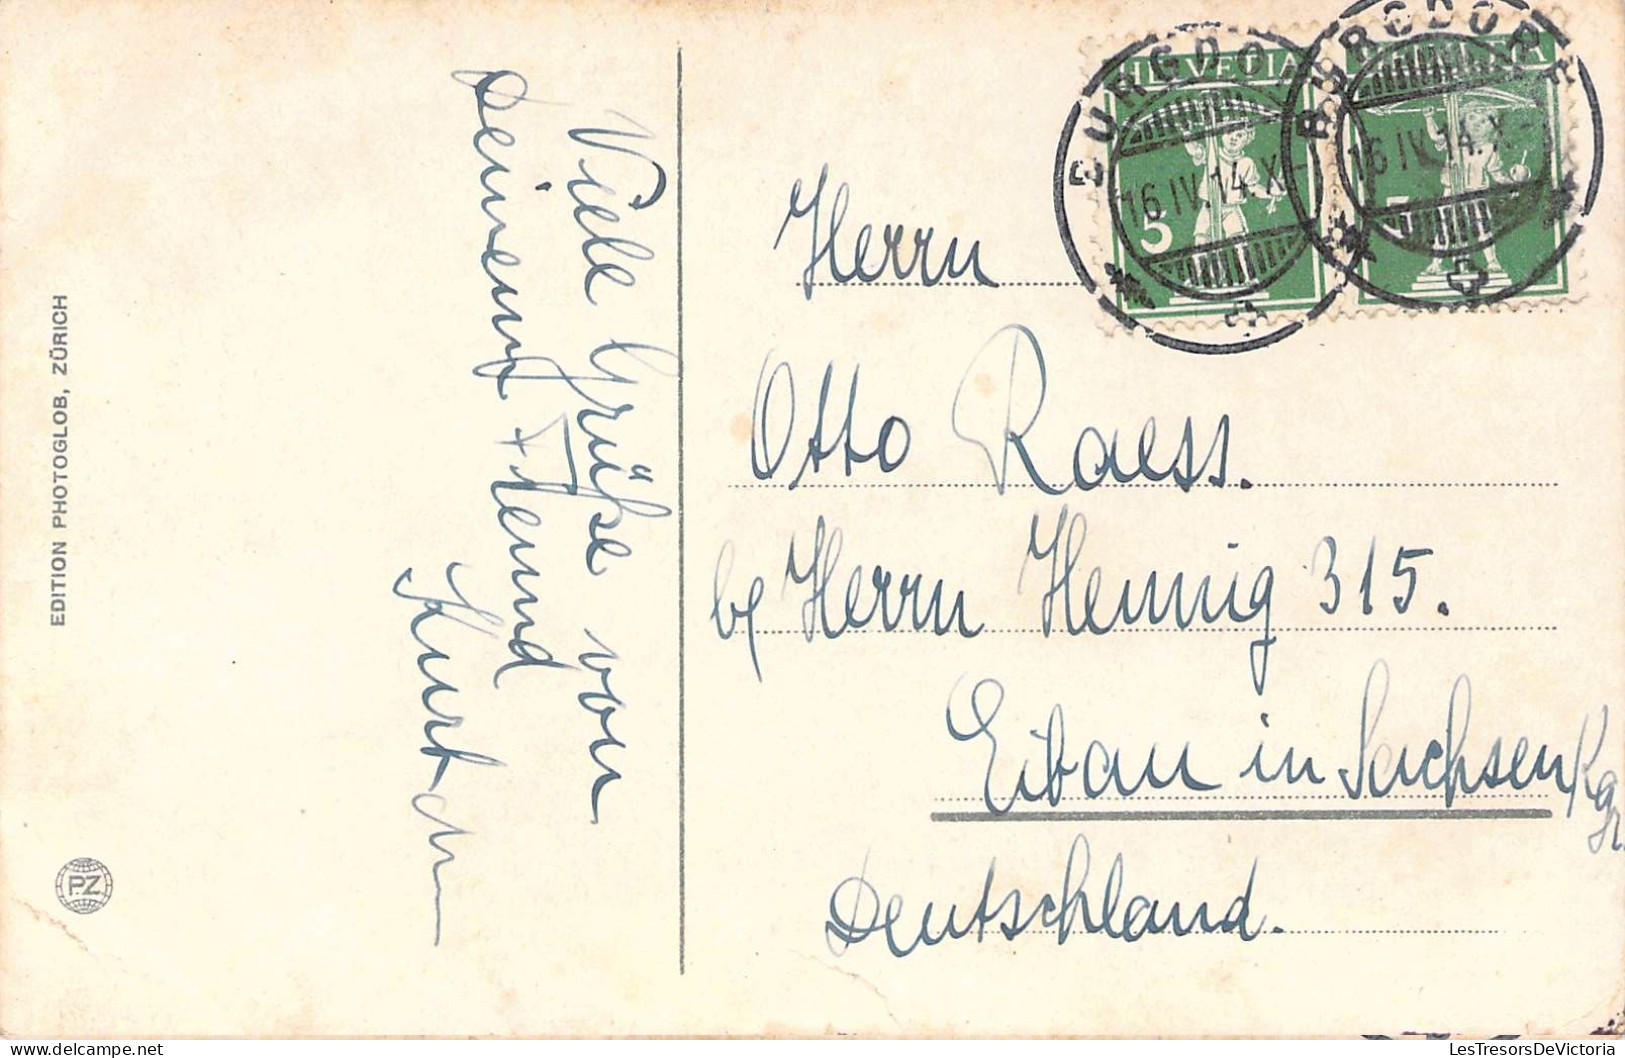 EDITION PHOTOGLOB, ZÜRICH
P.Z.
Viele Grüße von
Deinem Freund
Kurt
HELVETIA
5
BURGDORF
16.IV.14.X-
HELVETIA
5
BURGDORF
16.IV.14.X-
Herrn
Otto Raess.
b/ Herrn Hennig 315.
Eibau in Sachsen Kgr.
Deutschland.
LesTresorsDeVictoria